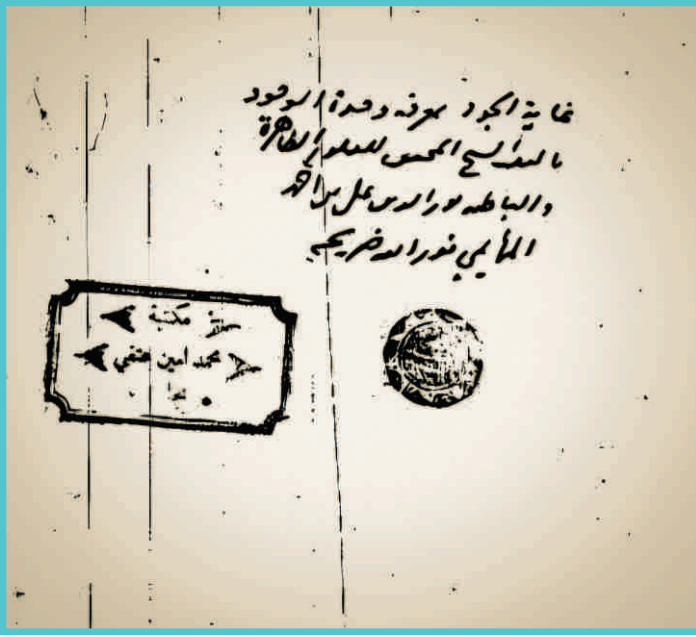 غاية الجود بمعرفه وحدة الوجود
تاليف الشيخ المحقق للعلوم الظاهرة
والباطنه نور الدين علي بن احمد
المهايمي نور الله ضريحه
مكتبة
محمد امين حنفي